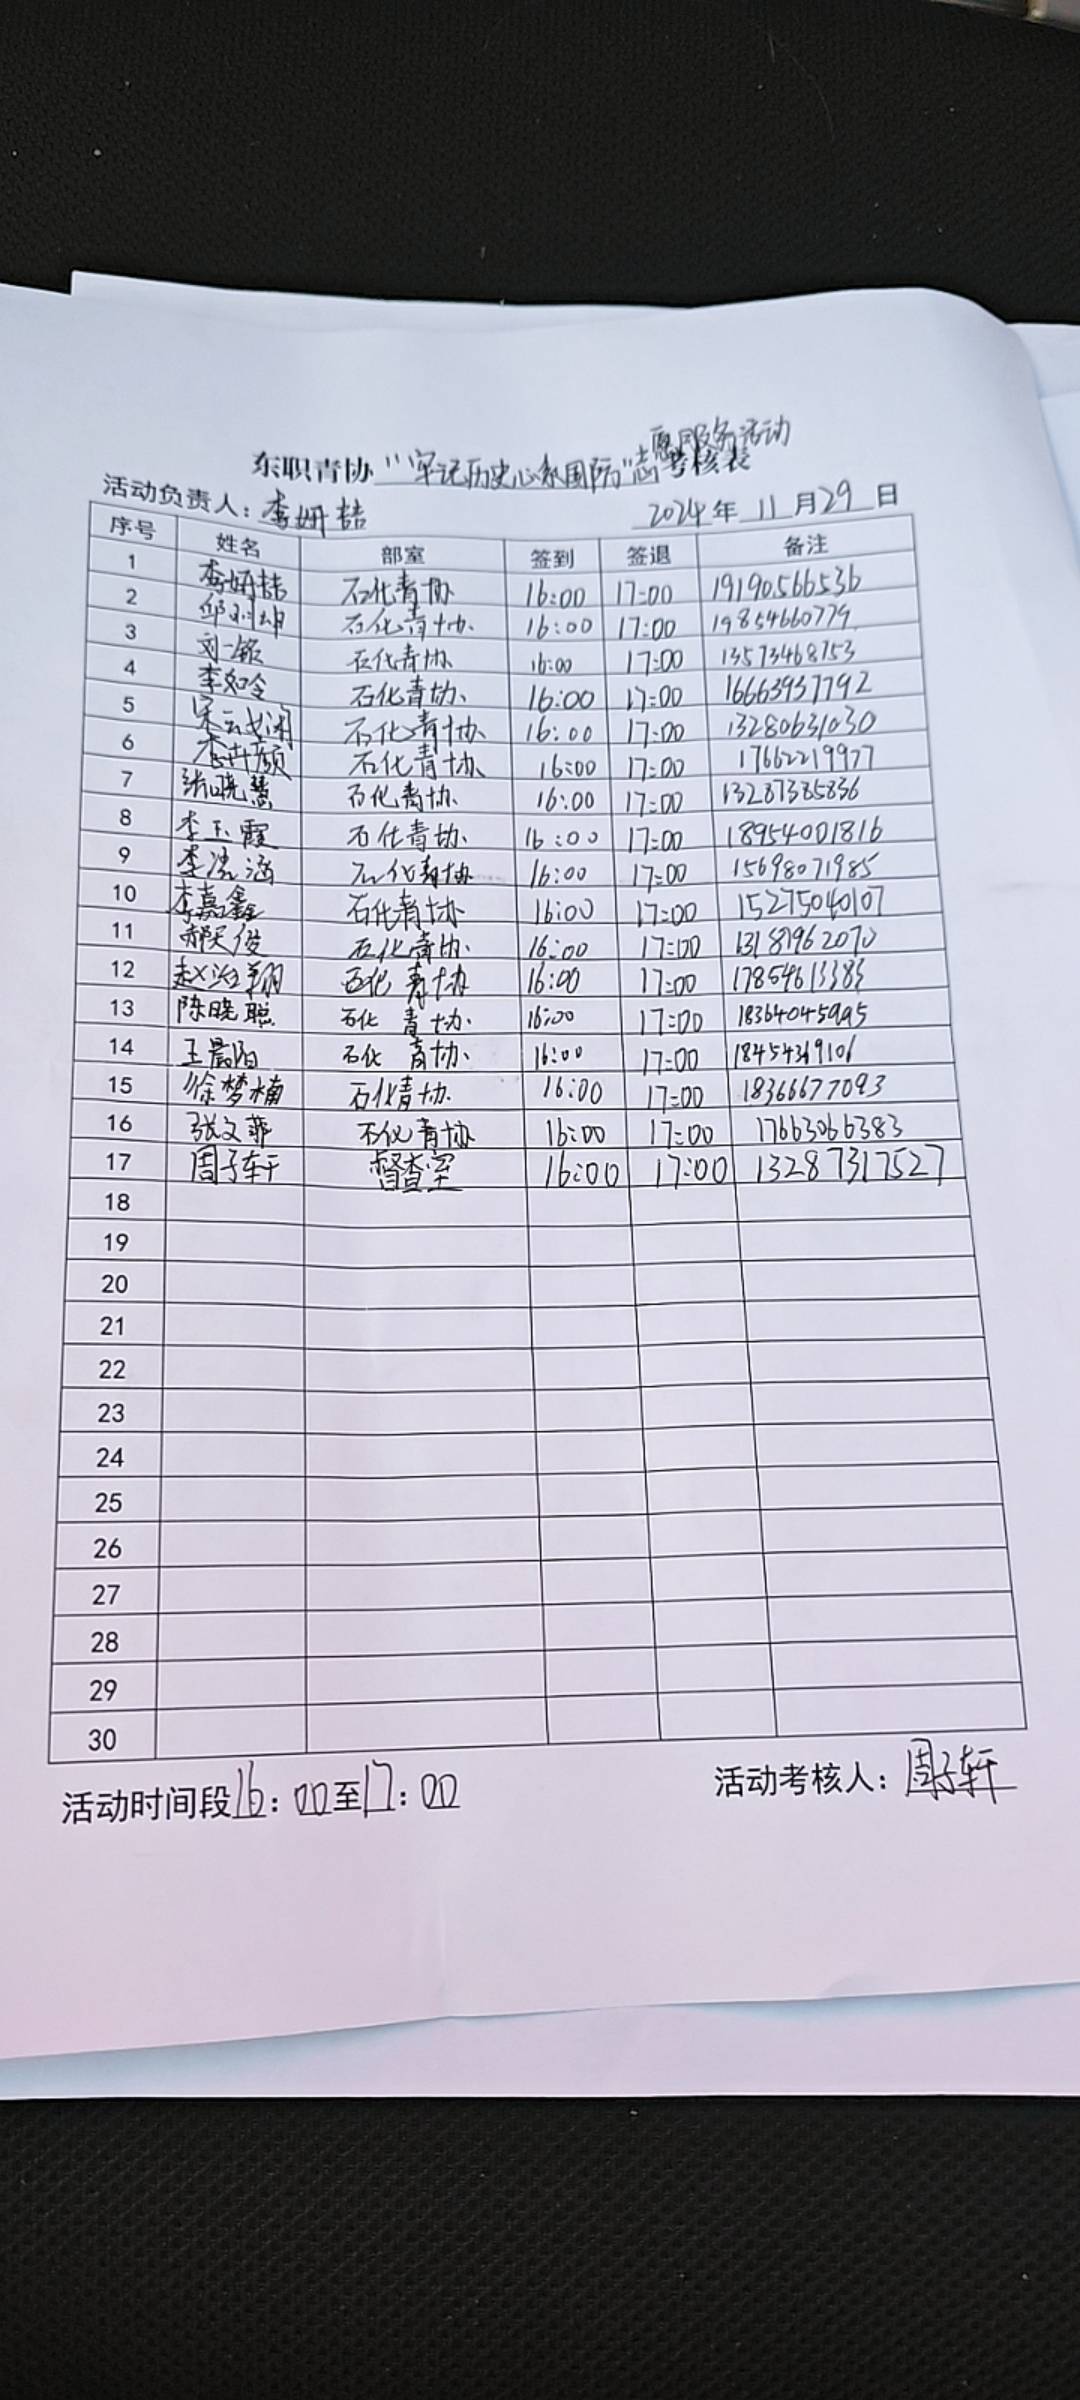 东职青协"牢记历史心系国防"志愿服务活动考核表
活动负责人：李妍桔 2024年11月29日
序号 姓名 部室 签到 签退 备注
1 李妍桔 石化青协 16:00 17:00 19190566536
2 邱 坤 石化青协 16:00 17:00 19854660779
3 刘一铭 石化青协 16:00 17:00 13573468753
4 李如令 石化青协 16:00 17:00 16663937792
5 宋云 石化青协 16:00 17:00 13280631030
6 李卉颜 石化青协 16:00 17:00 17662219977
7 张晓慧 石化青协 16:00 17:00 13287385836
8 李玉霞 石化青协 16:00 17:00 18954001816
9 李浩涵 石化青协 16:00 17:00 15698071985
10 李嘉鑫 石化青协 16:00 17:00 15275040107
11 郝天俊 石化青协 16:00 17:00 13181962070
12 赵 翔 石化青协 16:00 17:00 17854613383
13 陈晓聪 石化青协 16:00 17:00 18364045995
14 王晨阳 石化青协 16:00 17:00 18454369106
15 徐梦楠 石化青协 16:00 17:00 18366677093
16 张文菲 石化青协 16:00 17:00 17663066383
17 周子轩 督查室 16:00 17:00 13287317527
18
19
20
21
22
23
24
25
26
27
28
29
30
活动时间段16：00至17：00 活动考核人：周子轩